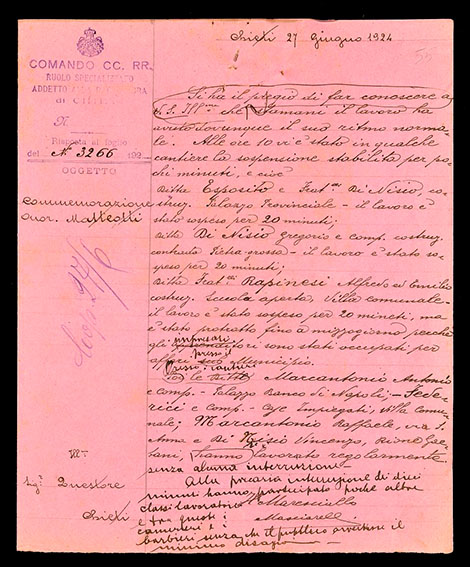 Chieti 27 Giugno 1924
COMANDO CC. RR.
RUOLO SPECIALIZZATO
ADDETTO ALLA
di CHIETI
N.
Risposta al foglio
del N. 3266 192
OGGETTO
Commemorazione
Onor. Matteotti
Si ha il pregio di far conoscere a
V. S. Ill.ma che stamani il lavoro ha
avuto dovunque il suo ritmo norma-
le. Alle ore 10 vi è stato in qualche
cantiere la sospensione stabilita per po-
chi minuti, e cioè
Ditta Esposito e Frat.lli Di Nisio, co-
struz. Palazzo Provinciale - il lavoro è
stato sospeso per 20 minuti;
Ditta Di Nisio Gregorio e comp. costruz.
contrada Pietra grossa - il lavoro è stato so-
speso per 20 minuti;
Ditta Frat.lli Rapinesi Alfredo ed Emilio
costruz. Scuola aperta, Villa comunale -
il lavoro è stato sospeso per 20 minuti, ma
è stato protratto fino a mezzogiorno, perchè
gli impresari sono stati occupati per
affari presso il Municipio.
Presso i cantieri
Ditte Marcantonio Antonio
e comp. - Palazzo Banco di Napoli; - Fede-
rici e comp. - Case Impiegati, Villa comu-
nale; Marcantonio Raffaele, via S.
Anna e Di Nisio Vincenzo, Rione Gae-
tani, hanno lavorato regolarmente
senza alcuna interruzione -
Alla precaria interruzione di dieci
minuti hanno partecipato poche altre
classi lavoratrici Maresciallo
e fra questi i
camerieri e
barbieri senza che il pubblico avvertisse il
minimo disagio
Ill.mo
Sig. Questore
Chieti